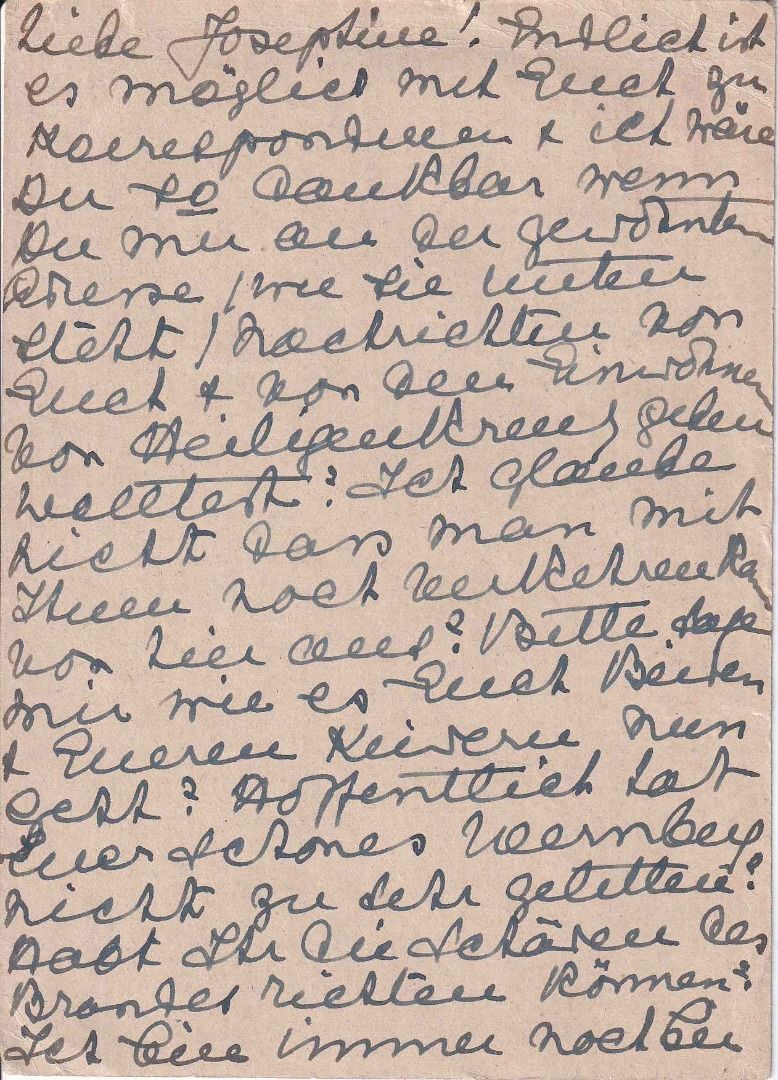 Liebe Josephine! Endlich ist
es möglich mit Euch zu
korrespondieren & ich wäre
Du so dankbar wenn
Du mir an der gewohnten
Adresse / wie sie unten
steht / Nachrichten von
Euch & von den Einwohnern
von Heiligenkreuz geben
wolltest? Ich glaube
nicht dass man mit
Ihnen noch verkehren kann
von hier aus? Bitte sage
mir wie es Euch Beiden
& Eueren Kindern nun
geht? Hoffentlich hat
Euer schönes Wernberg
nicht zu sehr gelitten?
Habt Ihr die Schäden des
Brandes richten können?
Ich bin immer noch bei